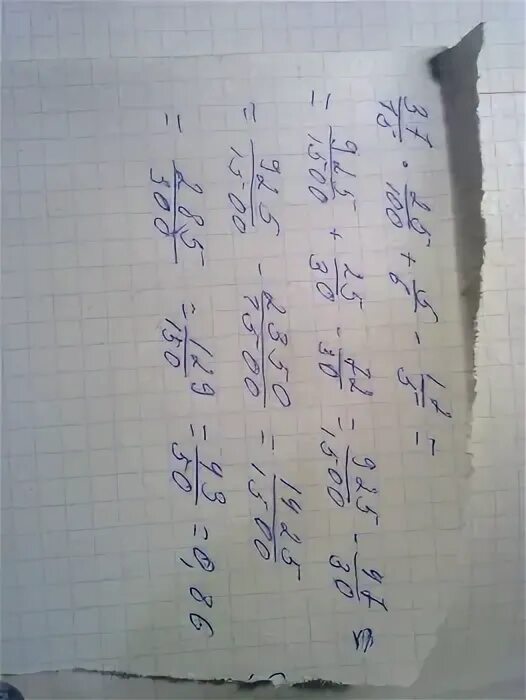 37/75 · 25/100 + 5/6 - 12/5 =
= 925/1500 + 25/30 - 72/30 = 925/1500 - 47/30 =
= 925/1500 - 2350/1500 = 1425/1500
= 285/300 = 129/150 = 43/50 = 0,86